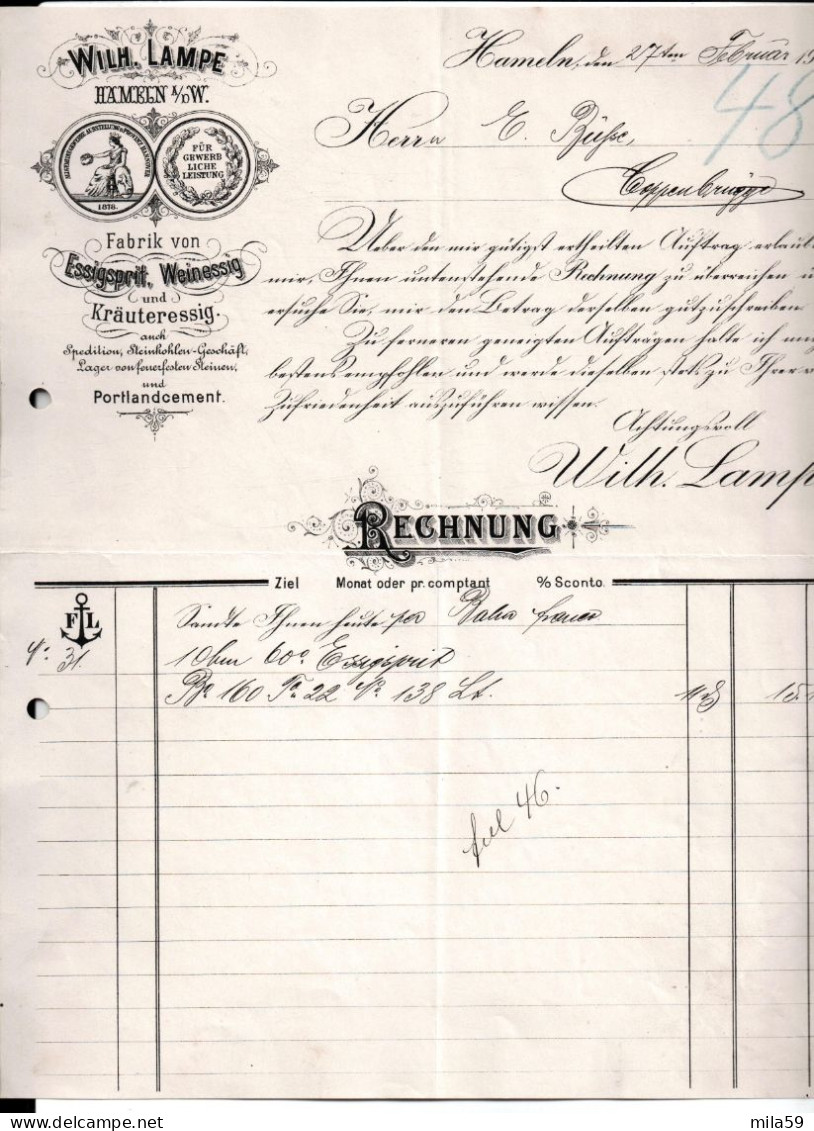 WILH. LAMPE
HAMELN A/D W.
ALLGEMEINE GEWERBE AUSSTELLUNG D. PROVINZ HANNOVER
1878.
FÜR
GEWERB
LICHE
LEISTUNG
Fabrik von
Essigsprit, Weinessig
und
Kräuteressig.
auch
Spedition, Steinkohlen-Geschäft,
Lager von feuerfesten Steinen,
und
Portlandcement.
Hameln, den 27ten Februar 19
48
Herrn E. Bühse,
Coppenbrügge
Ueber den mir gütigst ertheilten Auftrag erlaub
mir, Ihnen untenstehende Rechnung zu überreichen u
ersuche Sie, mir den Betrag derselben gutzuschreiben
Zu ferneren geneigten Aufträgen halte ich
bestens empfohlen und werde dieselben stets zu Ihrer
Zufriedenheit auszuführen wissen.
Achtungsvoll
Wilh. Lamp
RECHNUNG
Ziel Monat oder pr. comptant % Sconto.
F L
Sandte Ihnen heute per Bahn franco
No. 31. 1 Obm 60% Essigsprit
Bo 160 Ta 22 No 138 Lt. 15
fol 46.
mila59